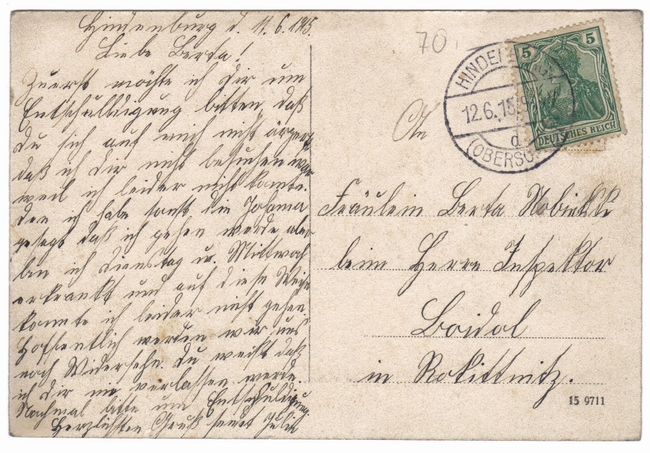 Hindenburg d. 11.6.15.
Liebe Berta!
Zuerst möchte ich dir um
Entschuldigung bitten, daß
du sich auf mich nicht ärgerst
daß ich dir nicht besuchen war
weil ich leider nicht konnte.
den ich habe sonst die
gesagt daß ich gehen werde aber
bin ich Dienstag u. Mittwoch
erkrankt und auf diese Weise
konnte ich leider nicht gehen.
Hoffentlich werden wir uns
noch Widersehn. du weißt daß
ich dir nie verlassen werde.
Nochmal bitte um Entschuldigung.
Herzlichsten Gruß sendet
70.
HINDENBURG
12.6.15
d
(OBERSCH
5 5
DEUTSCHES REICH
An
Fräulein Berta
beim Herrn Inspektor
Boidol
in Rokittnitz.
15 9711